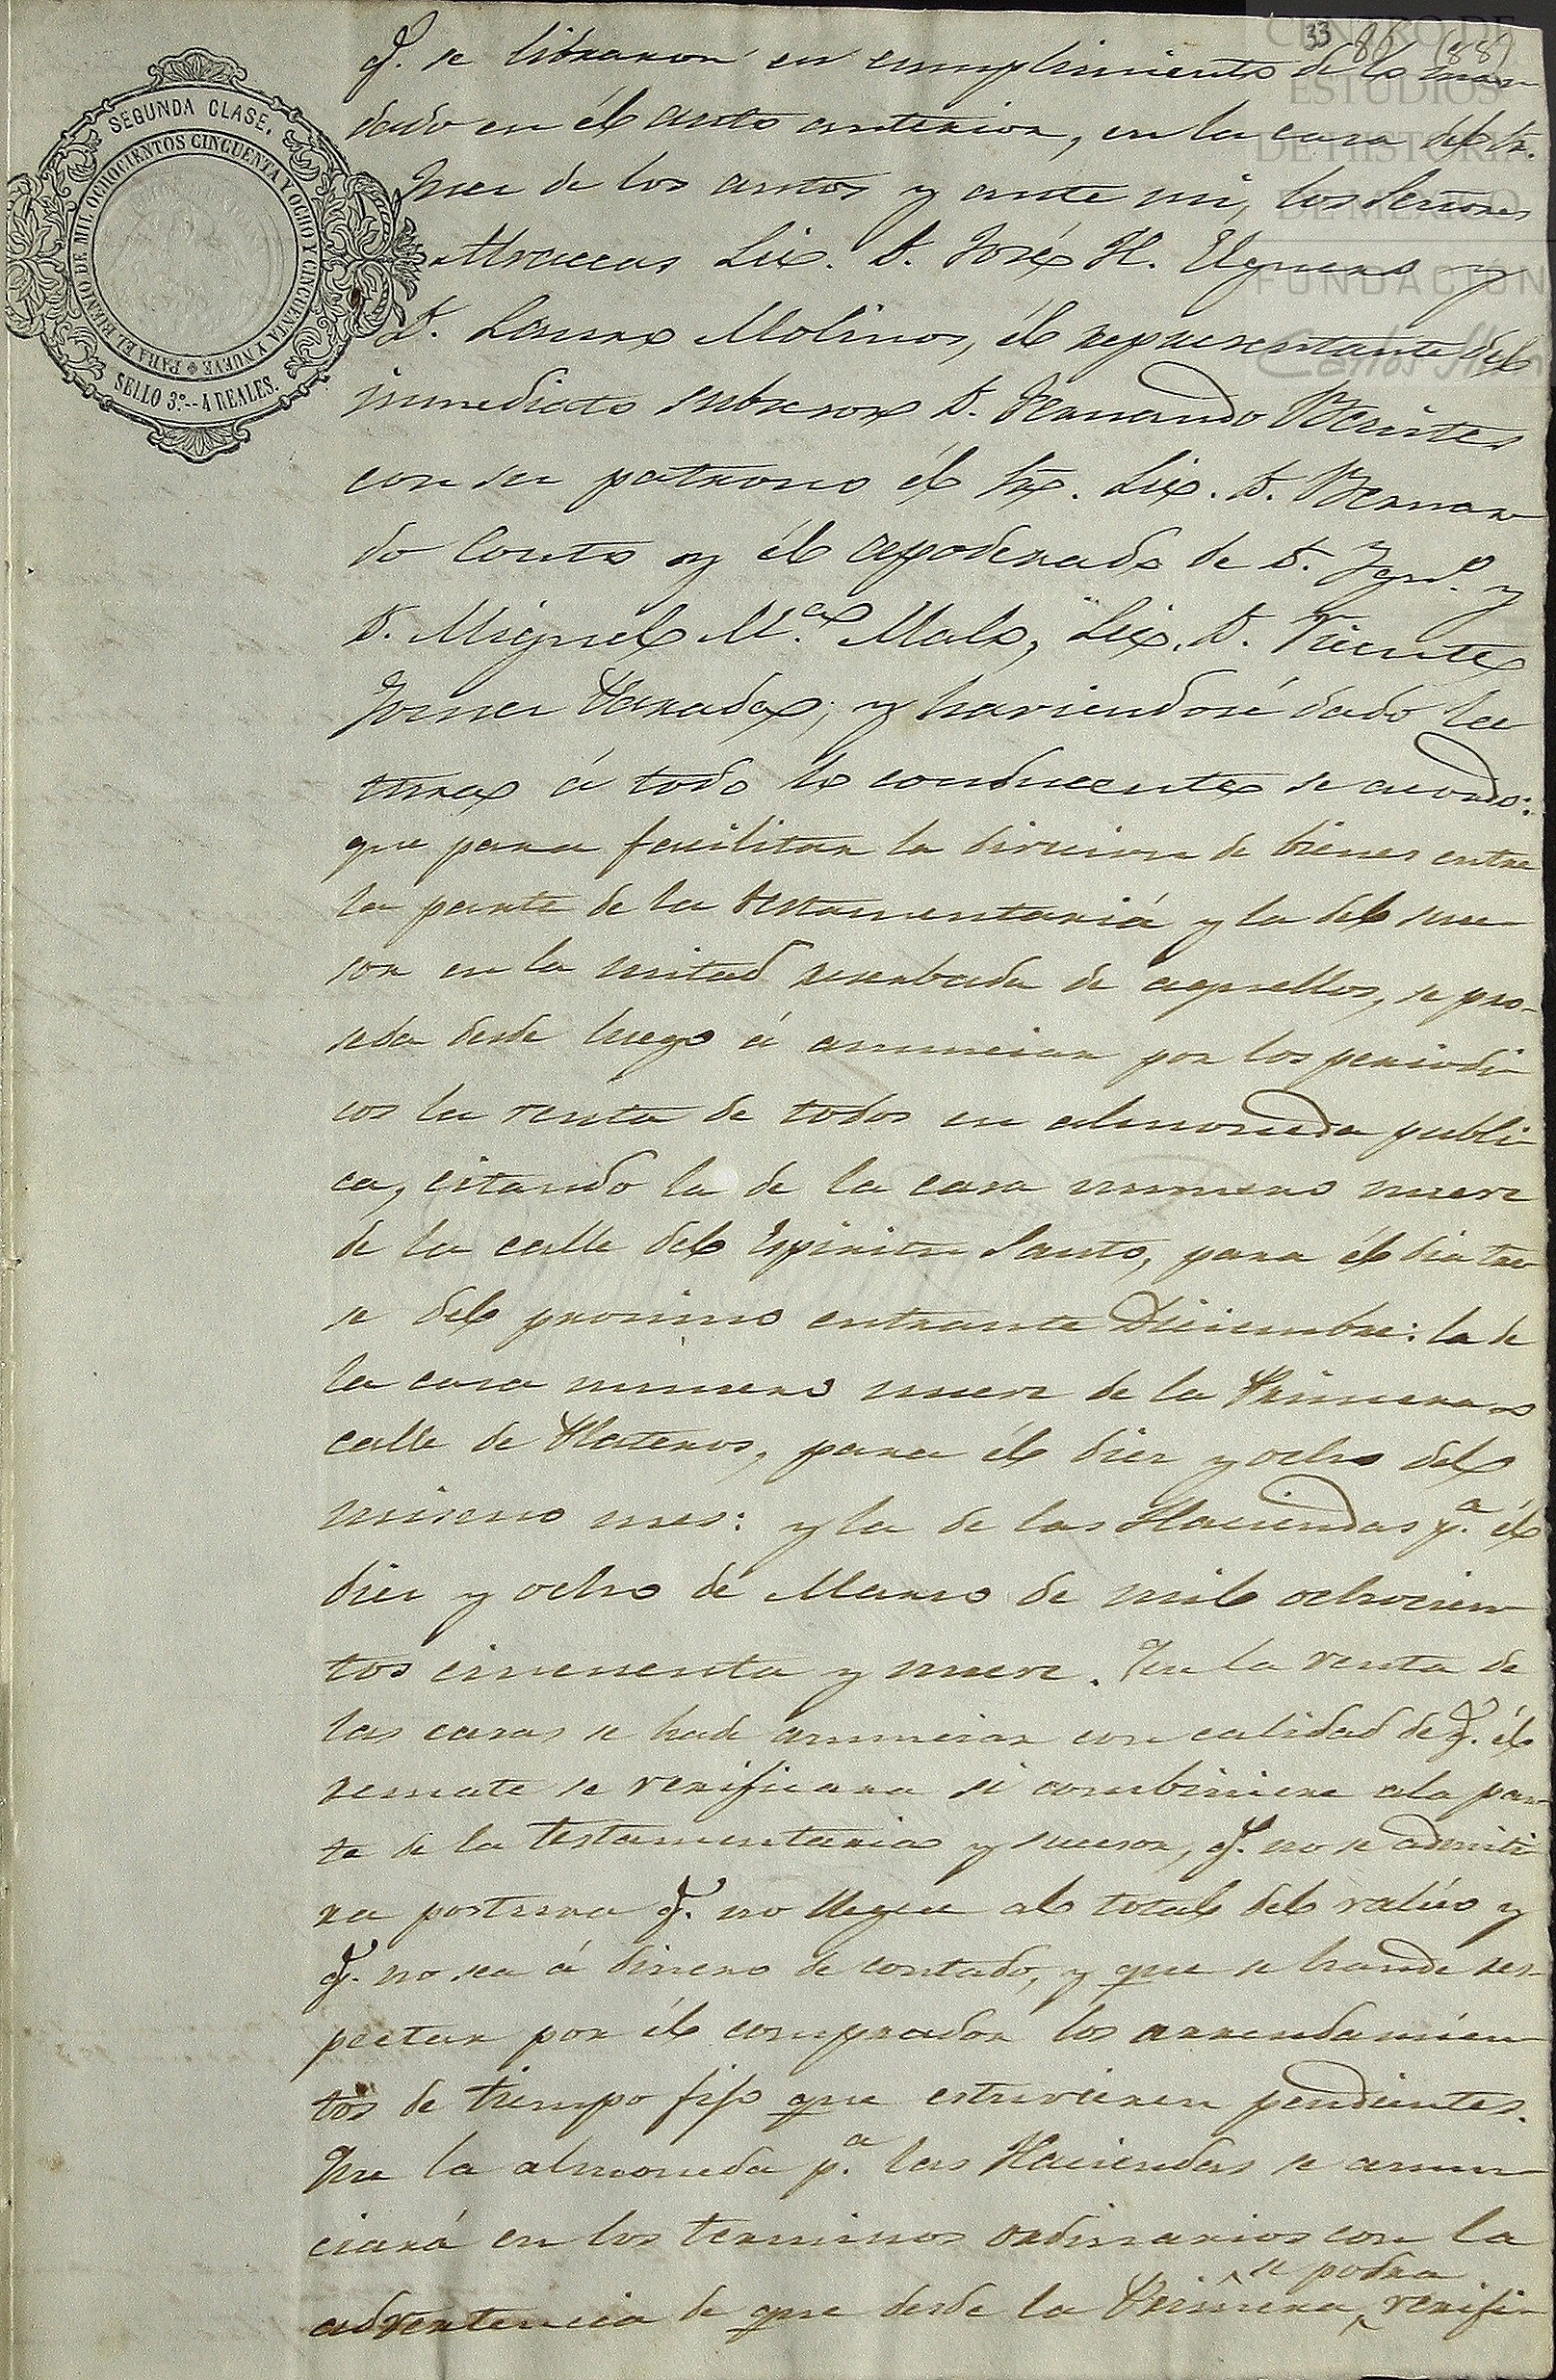 33 86 (88)
CENTRO DE
ESTUDIOS
DE HISTORIA
DE MEXICO
FUNDACIÓN
SEGUNDA CLASE.
PARA EL BIENIO DE MIL OCHOCIENTOS CINCUENTA Y OCHO Y CINCUENTA Y NUEVE
SELLO 3º.--4 REALES.
q. se libraron en cumplimiento de lo man
dado en él auto anterior, en la casa del Sr.
Juez de los autos y ante mi, los Señores
Albaceas Lic. D. José H. Elguero y
D. Lauro Molinos, él representante del
inmediato subcesor D. Fernando
con su patrono él Sr. Lic. D. Bernar
do Couto y él apoderado de D. Ygn.o y
D. Miguel M.a Malo, Lic. D. Vicente
Gomez Parada; y haviendosé dado lec
tura á todo lo conducente se acordo:
que para facilitar la divicion de bienes entre
la parte de la testamentariá y la del suce-
sor en la mitad reserbada de aquellos, se pro-
seda desde luego á anunciar por los periodi
cos la venta de todos en almoneda publi
ca, citando la de la casa numero nueve
de la calle del Espiritu Santo, para él dia tre
se del procimo entrante Diciembre: la de
la casa numero nueve de la Primera
calle de Plateros, para él diez y ocho del
mismo mes: y la de las Haciendas p.a él
diez y ocho de Marzo de mil ochocien
tos cincuenta y nueve. En la venta de
las casas se hade anunciar con calidad de q. él
remate se verificara si combiniere ala par
te de la testamentaria y sucesor, q. no se admiti
ra postura q. no llegue al total del valúo y
q. no sea á dinero de contado, y que se hande res-
pectar por él comprador los arrendamien
tos de tiempo fijo que estuvieren pendientes.
Que la almoneda p.a las Haciendas se anun
ciará en los terminos ordinarios con la
se podra
advertencia de que desde la Primera verifi-